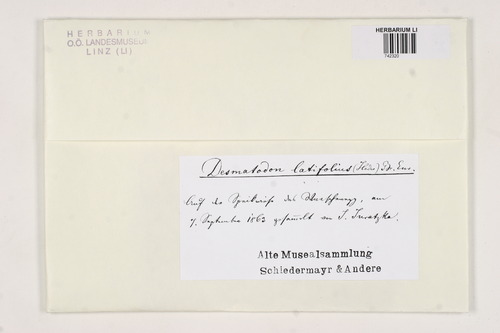 HERBARIUM
O.Ö. LANDESMUSEUM
LINZ (LI)
HERBARIUM LI
742320
Desmatodon latifolius (Hedw.) Br. Eur.
Auf der Speikwiese des
7. September 1863 gesammelt von J. Juratzka.
Alte Musealsammlung
Schiedermayr & Andere